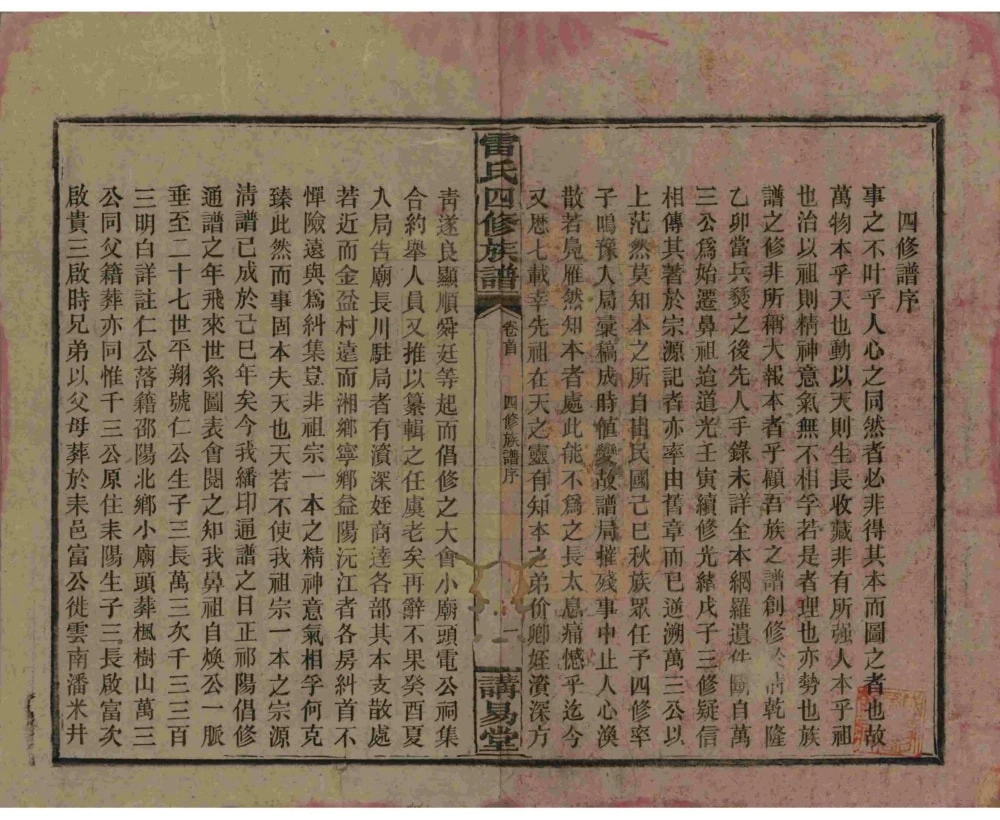 四修譜序
事之不叶乎人心之同然者必非得其本而圖之者也故
萬物本乎天也動以天則生長收藏非有所強人本乎祖
也治以祖則精神意氣無不相孚若是者理也亦勢也族
譜之修非所稱大報本者乎顧吾族之譜創修於清乾隆
乙卯當兵燹之後先人手錄未詳全本網羅遺佚斷自萬
三公爲始遷鼻祖迨道光壬寅續修光緒戊子三修疑信
相傳其著於宗源記者亦率由舊章而已逆溯萬三公以
上茫然莫知本之所自出民國己巳秋族眾任予四修率
子鳴豫人局稾稿成時值變故譜局摧殘事中止人心渙
散若鳧雁然知本者處此能不爲之長太息痛憾乎迄今
又厯七載幸先祖在天之靈有知本之弟价卿姪濆深方
雷氏四修族譜 卷首 四修族譜序 一 講易堂
靑遂良顯順舜廷等起而倡修之大會小廟頭電公祠集
合約舉人員又推以纂輯之任虞老矣再辭不果癸酉夏
入局告廟長川駐局者有濆深姪商達各部其本支散處
若近而金盆村遠而湘鄉寧鄉益陽沅江者各房糾首不
憚險遠與爲糾集豈非祖宗一本之精神意氣相孚何克
臻此然而事固本夫天也天若不使我祖宗一本之宗源
淸譜已成於己巳年矣今我繙印通譜之日正祁陽倡修
通譜之年飛來世系圖表會閱之知我鼻祖自煥公一脈
垂至二十七世平翔號仁公生子三長萬三次千三三百
三明白詳註仁公落籍邵陽北鄉小廟頭葬楓樹山萬三
公同父籍葬亦同惟千三公原住耒陽生子三長啟富次
啟貴三啟時兄弟以父母葬於耒邑富公徙雲南潘米井